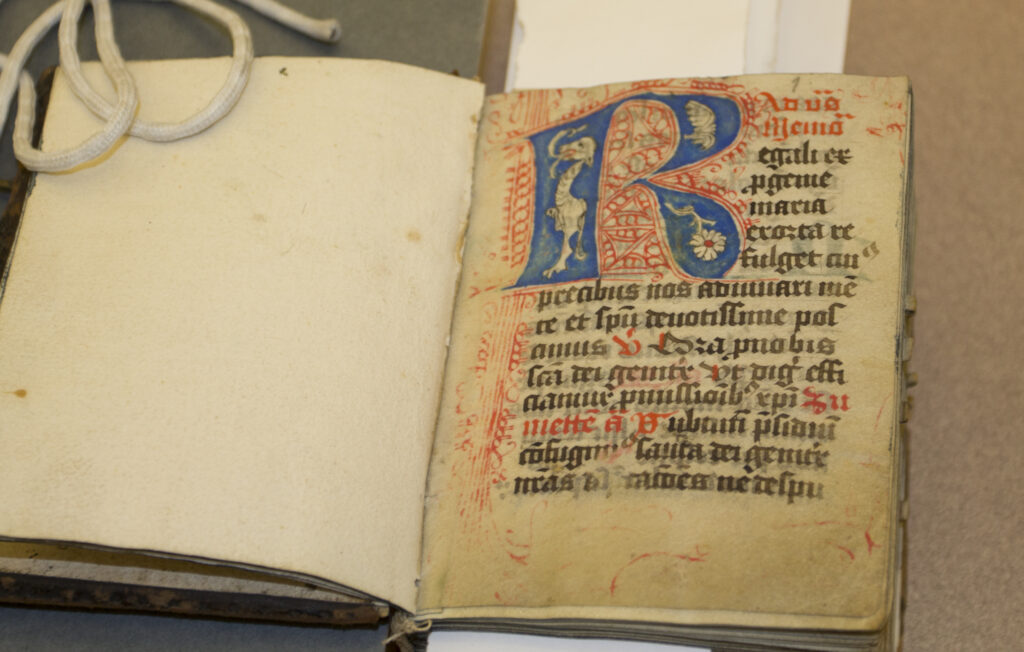 1
Ad vō
Memō
R egali ex
ꝓgenie
maria
exorta re
fulget cuiꝰ
precibus nos adiuuari mē
te et spū deuotissime pos
cimus V Ora ꝓ nobis
scā dei genitͬx Vt digͥ effi
ciamur ꝓmissioībꝰ xpī Su
mettē ā S ub tuū p̄sidiū
cōfugimꝰ sancta dei genitͬx
nr̄as dep̄catōes ne despi